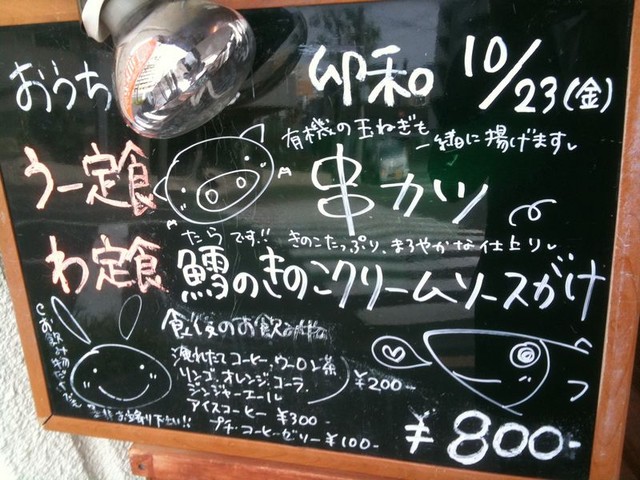 おうち
卯和 10/23(金)
有機の玉ねぎも
一緒に揚げます
う一定食 串カツ
たらです!! きのこたっぷり、まろやかな仕上り
わ定食 鱈のきのこクリームソースがけ
食後のお飲み物
淹れたコーヒー、ウーロン茶
リンゴ、オレンジ、コーラ、
ジンジャーエール
¥200-
アイスコーヒー ¥300-
プチコーヒーゼリー ¥100-
お飲み物
¥800-